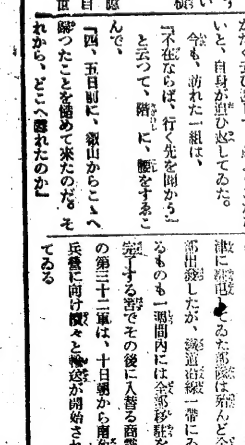 いと、自身が思ひ返してゐた。
今も、訪れた一組は、
『不在ならば、行く先を聞かう』
と云つて、階に、腰をすゑこ
んで、
『四、五日前に、叡山からこゝへ
歸つたことを確めて來たのだ。そ
れから、どこへ
れたのか』
津に
てゐた部隊は殆んど全
部出發したが、鐵道沿線一帶にゐ
るものも一週間内には全部移駐を
完了する筈でその後に入替る商震
の第三十二軍は、十日朝から南
兵營に向け續々と輸送が開始さ
てゐる